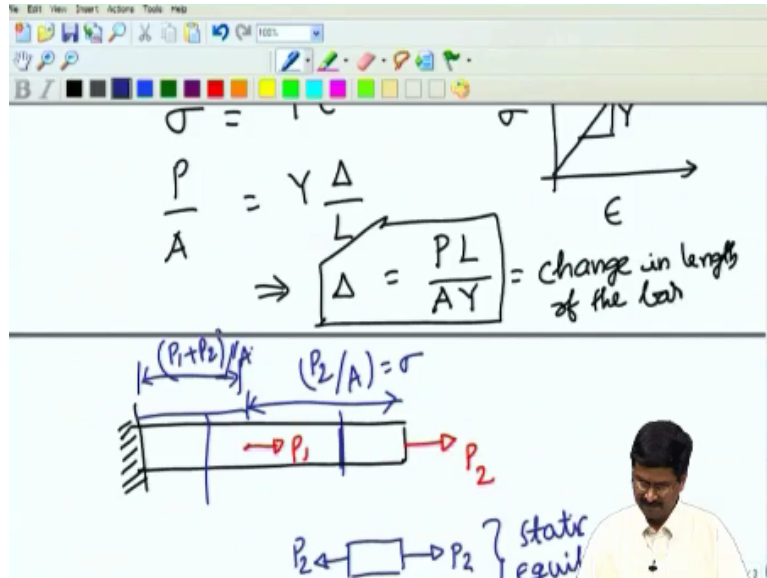 Edit View Insert Actions Tools Help
100%
B I
σ =
σ Y
P/A = Y Δ/L
ϵ
⇒ Δ = PL/AY = change in length
of the bar
(P₁+P₂)/A (P₂/A) = σ
P₁ P₂
P₂ P₂ } static
equil